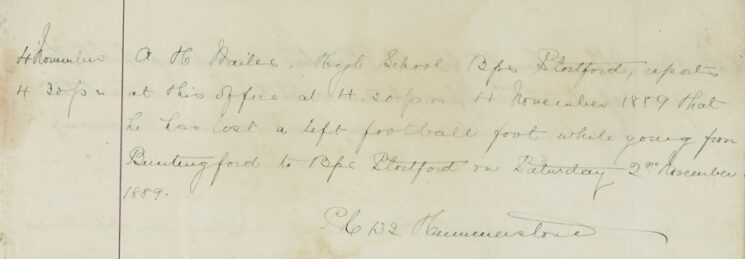 4 November
4 30 pm
A H Wailes, High School, Bps Stortford, reports
at this office at 4.30 pm 4 November 1889 that
he has lost a left football foot while going from
Buntingford to Bps Stortford on Saturday 2nd November
1889.
PC 132 Hummerstone